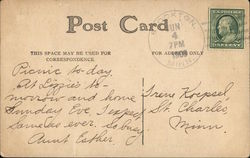 Post Card
THIS SPACE MAY BE USED FOR
CORRESPONDENCE.
FOR ADDRESS ONLY
JUN
4
7PM
1909
MINN.
Picnic to-day
At Lizzie's to-
morrow and home
Sunday Eve. I expect
Same as ever. So busy.
Aunt Esther.
Irene Koepsel,
St. Charles,
Minn